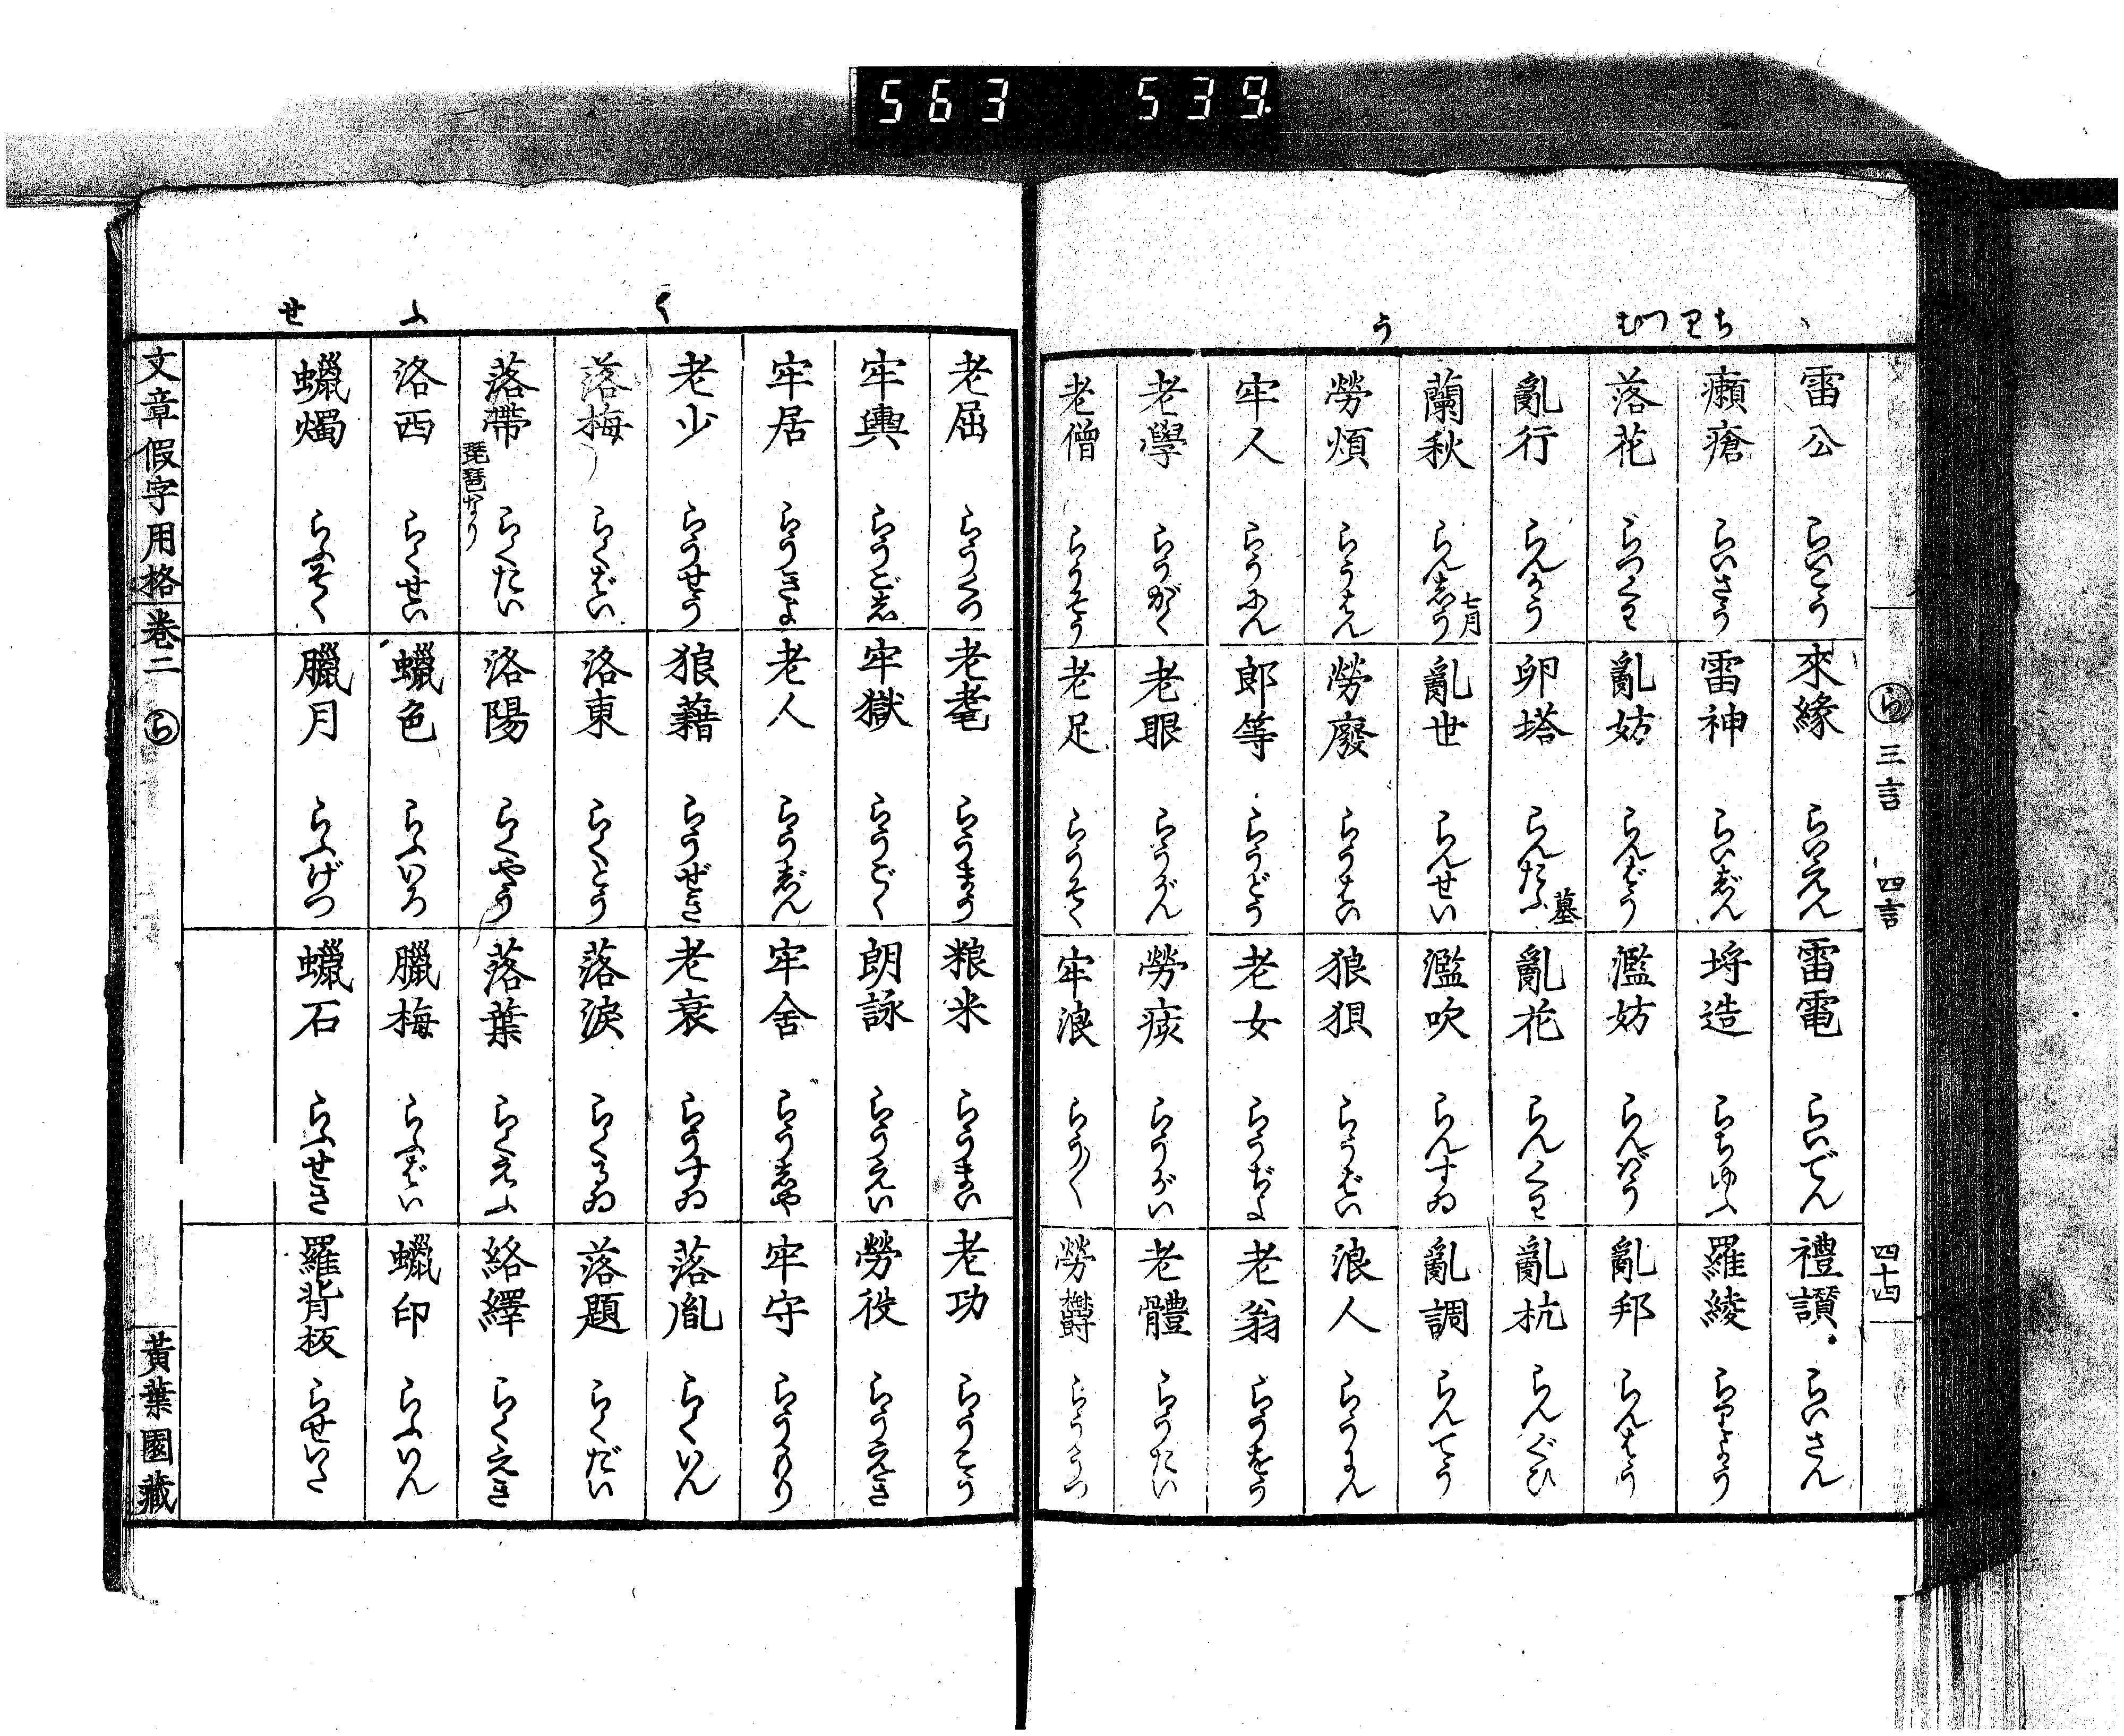 563 539.
ち わ つ む
う
ら 三言 四言 四十四
雷公 らいこう 來緣 らいえん 雷電 らいでん 禮讃 らいさん
癩瘡 らいさう 雷神 らいじん 埒造 らちゆふ 羅綾
落花 らつくわ 亂妨 らんばう 濫妨 らんばう 亂邦 らんはう
亂行 らんかう 卵塔 らんたふ 墓 亂花 らんくわ 亂杭 らんぐひ
蘭秋 らんしう 七月 亂世 らんせい 濫吹 らんすゐ 亂調 らんてう
勞煩 らうはん 勞廢 らうはい 狼狽 らうばい 浪人 らうにん
牢人 らうにん 郎等 らうどう 老女 らうぢよ 老翁 らうをう
老學 らうがく 老眼 らうがん 勞痎 らうがい 老體 らうたい
老僧 らうそう 老足 らうそく 牢浪 らう〱 勞鬱 らううつ
く
ふ
せ
老屈 らうくつ 老耄 らうまう 粮米 らうまい 老功 らうこう
牢輿 らうごし 牢獄 らうごく 朗詠 らうえい 勞役 らうえき
牢居 らうきよ 老人 らうじん 牢舍 らうしや 牢守 らうもり
老少 らうせう 狼藉 らうぜき 老衰 らうすゐ 落胤 らくいん
落梅 らくばい 洛東 らくとう 落淚 らくるゐ 落題 らくだい
落帶 琵琶なり らくたい 洛陽 らくやう 落葉 らくえふ 絡繹 らくえき
洛西 らくせい 蠟色 らふいろ 臘梅 らふばい 蠟印 らふいん
蠟燭 らふそく 臘月 らふげつ 蠟石 らふせき 羅背板 らせいた
文章假字用格 卷二 ら 黃葉園藏